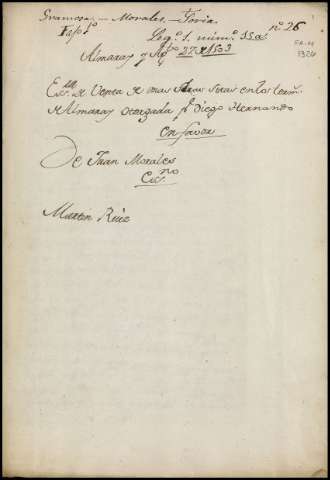 Granosa. — Morales. — Soria.
Fajo 1º nº 26
Leg.º 1. núm.º 35.a
Almaray y Ag.to 27 # 1503
Es.ra de Venta de unas tierras sitas en los term.
de Almaray otorgada p.r Diego Hernando
en favor
De Juan Morales
Es.no
Martin Ruiz